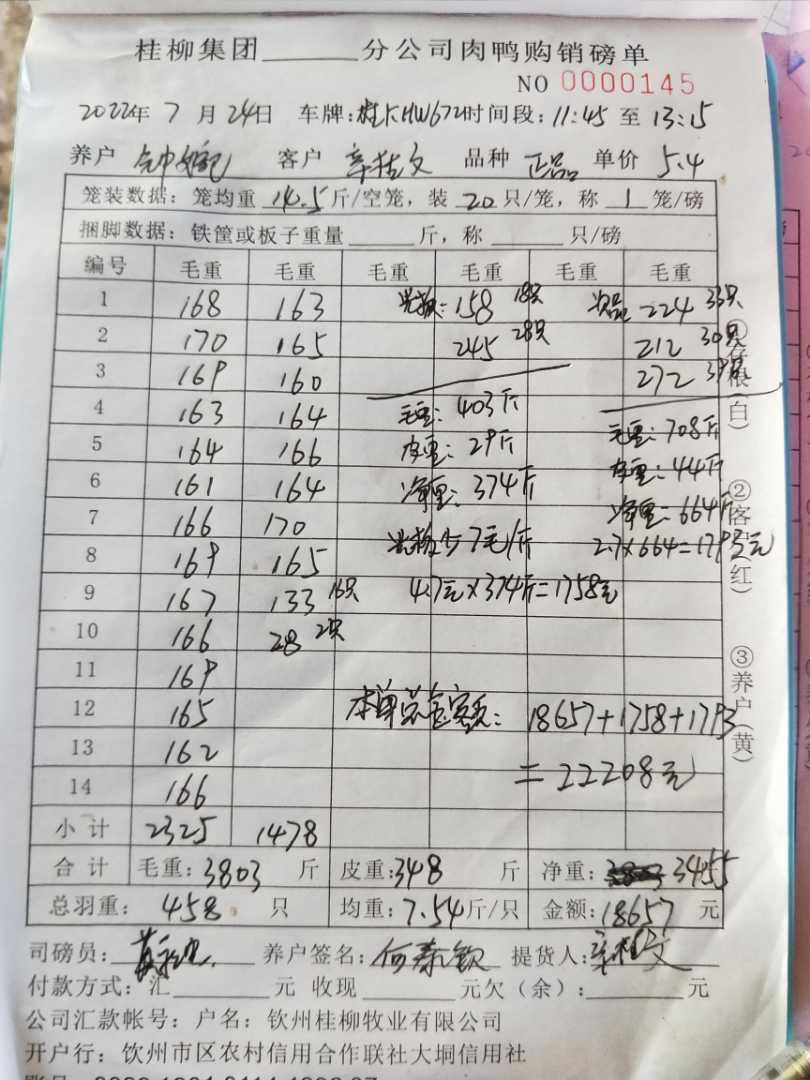 桂柳集团______分公司肉鸭购销磅单
NO 0000145
2022年 7 月 24日 车牌:桂KHW672时间段:11:45 至 13:15
养户 客户 辛桂文 品种 正品 单价 5.4
笼装数据:笼均重 14.5斤/空笼,装 20 只/笼,称 1 笼/磅
捆脚数据:铁筐或板子重量______斤,称______只/磅
编号 毛重 毛重 毛重 毛重 毛重 毛重
1 168 163 光板:158 18只 次品 224 33只
2 170 165 245 28只 212 30只
3 169 160 272 39只
4 163 164 毛重:403斤 毛重:708斤
5 164 166 皮重:29斤 皮重:44斤
6 161 164 净重:374斤 净重:664斤
7 166 170 光板少7毛/斤 2.7×664=1793元
8 169 165
9 167 133 16只 4.7元×374斤=1758元
10 166 28 2只
11 169
12 165 本单总金额: 18657+1758+1793
13 162 =22208元
14 166
小计 2325 1478
合计 毛重:3803 斤 皮重:348 斤 净重:3455
总羽重: 458 只 均重:7.54斤/只 金额:18657 元
司磅员: 养户签名:何春钦 提货人:辛桂文
付款方式:汇______元 收现______元欠(余):______元
公司汇款帐号:户名:钦州桂柳牧业有限公司
开户行:钦州市区农村信用合作联社大垌信用社
①存根(白)
②客 (红)
③养户(黄)